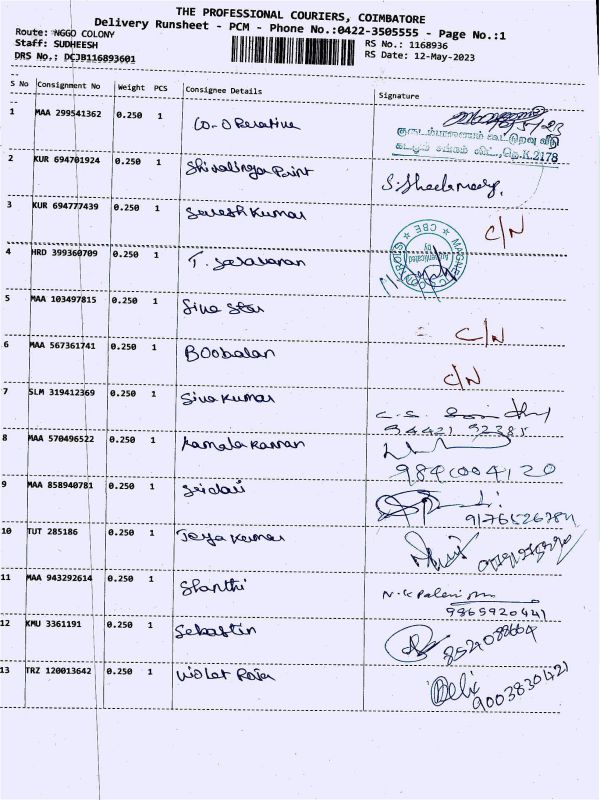 THE PROFESSIONAL COURIERS, COIMBATORE
Delivery Runsheet - PCM - Phone No.:0422-3505555 - Page No.:1
Route: NGGO COLONY
RS No.: 1168936
Staff: SUDHEESH
RS Date: 12-May-2023
DRS No,: DCJB116893601
S No Consignment No Weight PCS Consignee Details Signature
1 MAA 299541362 0.250 1 Co-Operative
கூட்டுறவு வீடு
கட்டும் சங்கம் லிட்., K.2178
2 KUR 694701924 0.250 1 Shivalinga Print
3 KUR 694777439 0.250 1 Suresh Kumar C/N
4 HRD 399360709 0.250 1 T. Saravanan
CBE
Authenticated
by
5 MAA 103497815 0.250 1 Siva Star C/N
6 MAA 567361741 0.250 1 Boobalan C/N
7 SLM 319412369 0.250 1 Siva Kumar
94421 92385
8 MAA 570496522 0.250 1 Kamala Kannan
9841004120
9 MAA 858940781 0.250 1 Sridari
10 TUT 285186 0.250 1 Jeya Kumar
11 MAA 943292614 0.250 1 Shanthi
9865920441
12 KMU 3361191 0.250 1 Sebastin
8524088664
13 TRZ 120013642 0.250 1 Violet Raja
9003830421